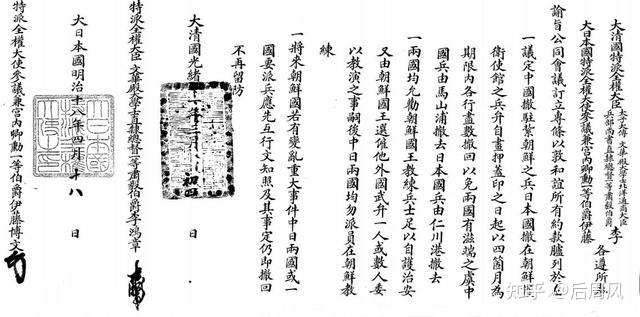 大清國特派全權大臣太子太傅文華殿大學士北洋通商大臣兵部尚書直隸總督一等肅毅伯爵李
大日本國特派全權大使參議兼宮內卿勳一等伯爵伊藤 各遵所奉
諭旨公同會議訂立專條以敦和誼所有約款臚列於左
一議定中國撤駐紮朝鮮之兵日本國撤在朝鮮護
衛使館之兵弁自畫押蓋印之日起以四箇月為
期限內各行盡數撤回以免兩國有滋端之虞中
國兵由馬山浦撤去日本國兵由仁川港撤去
一兩國均允勸朝鮮國王教練兵士足以自護治安
又由朝鮮國王選僱他外國武弁一人或數人委
以教演之事嗣後中日兩國均勿派員在朝鮮教
練
一將來朝鮮國若有變亂重大事件中日兩國或一
國要派兵應先互行文知照及其事定仍即撤回
不再留防
大清國光緒十一年三月初四日
特派全權大臣文華殿大學士直隸總督一等肅毅伯爵李鴻章
大日本國明治十八年四月十八日
特派全權大使參議兼宮內卿勳一等伯爵伊藤博文
知乎 @后周风